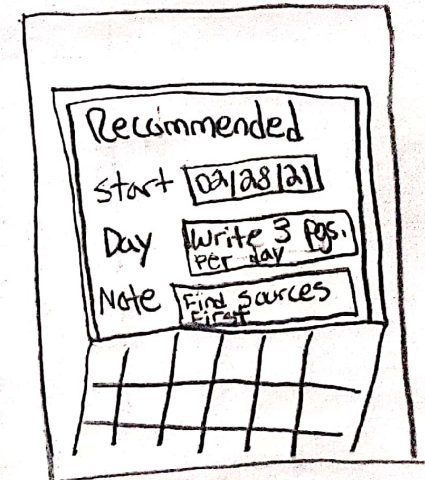 Recommended
Start 02/28/21
Day Write 3 pgs.
per day
Note Find sources
First